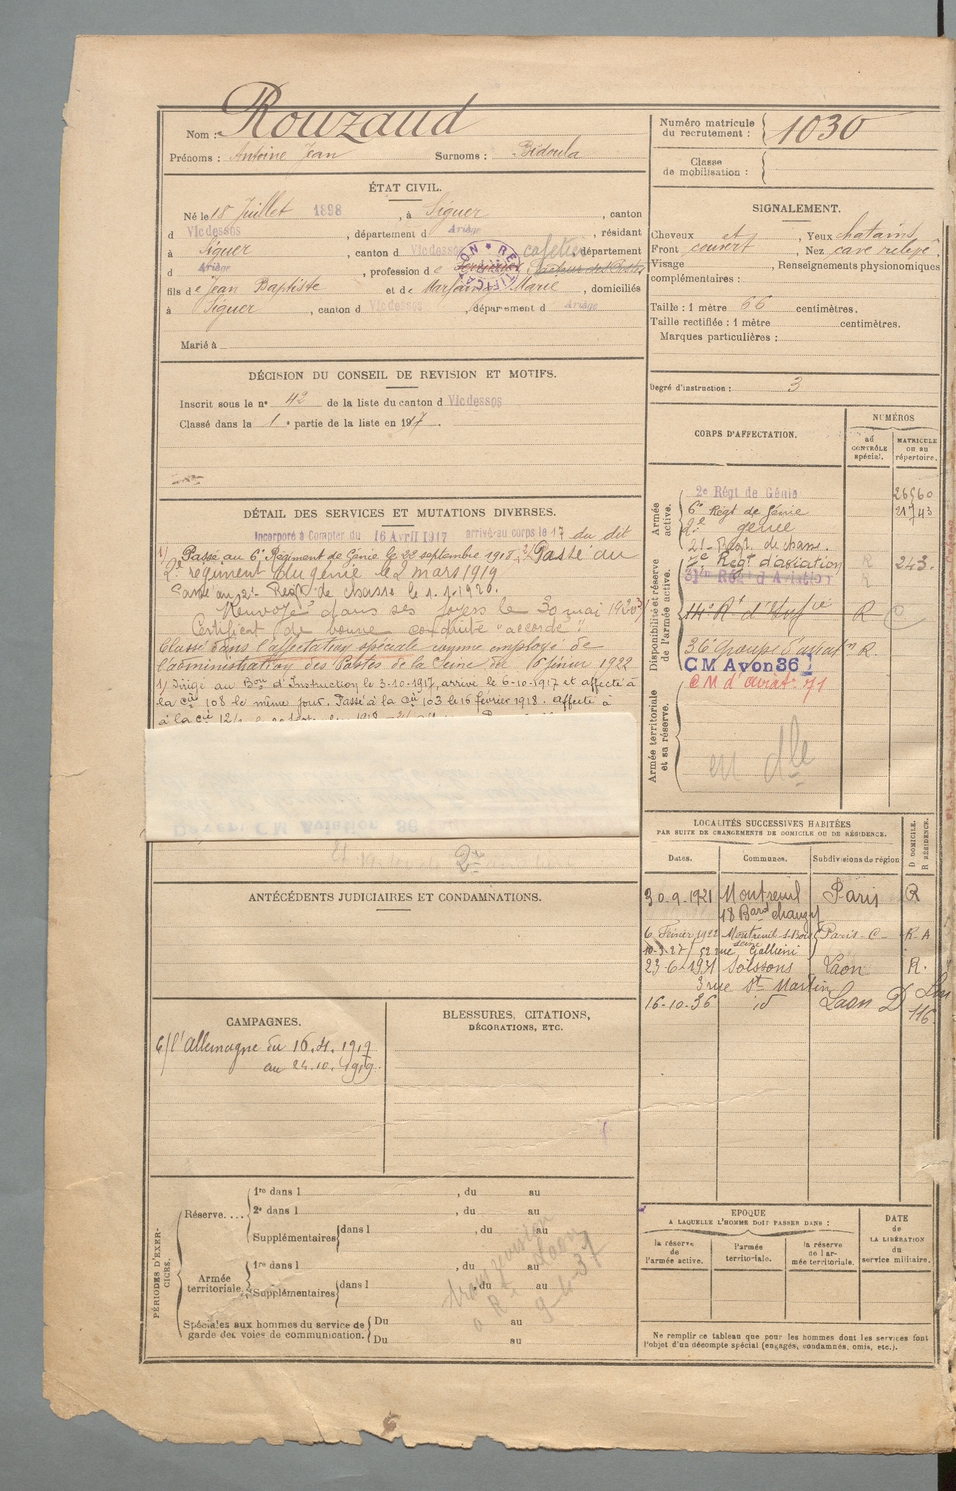 Nom : Rouzaud
Prénoms : Antoine Jean Surnoms : Bidoula
ÉTAT CIVIL.
Né le 18 Juillet 1898, à Siguer, canton
d Vicdessos, département d Ariège, résidant
à Siguer, canton d Vicdessos, département
d Ariège, profession de cafetier
fils de Jean Baptiste et de Marie, domiciliés
à Siguer, canton d Vicdessos, département d Ariège
Marié à
DÉCISION DU CONSEIL DE REVISION ET MOTIFS.
Inscrit sous le n° 42 de la liste du canton d Vicdessos
Classé dans la 1e partie de la liste en 1917.
DÉTAIL DES SERVICES ET MUTATIONS DIVERSES.
Incorporé à Compter du 16 Avril 1917 arrivé au corps le 17 du dit
1) Passé au 6e Régiment de Génie le 22 septembre 1918. Passé au
2e régiment du génie le 2 mars 1919
Passé au 21e Regt de chasse le 1.1.1920.
Renvoyé dans ses foyers le 30 mai 1920
Certificat de bonne conduite "accordé".
Classé dans l'affectation spéciale comme employé de
l'administration des Postes de la Seine du 16 février 1922
1) Dirigé au Bon d'Instruction le 3-10-1917, arrivé le 6-10-1917 et affecté à
la cie 108 le même jour. Passé à la cie 103 le 16 février 1918. affecté à
à la cie
2e
ANTÉCÉDENTS JUDICIAIRES ET CONDAMNATIONS.
CAMPAGNES.
C/ l'allemagne du 16.4.1917
au 24.10.1919.
BLESSURES, CITATIONS,
DÉCORATIONS, ETC.
PÉRIODES D'EXERCICES.
Réserve....
1re dans l , du au
2e dans l , du au
Supplémentaires dans l , du au
Armée
territoriale.
1re dans l , du au
Supplémentaires dans l , du au
Spéciales aux hommes du service de
garde des voies de communication.
Du au
Du au
Numéro matricule
du recrutement : 1030
Classe
de mobilisation :
SIGNALEMENT.
Cheveux et, Yeux chatains
Front couvert, Nez cave relevé.
Visage , Renseignements physionomiques
complémentaires :
Taille : 1 mètre 66 centimètres.
Taille rectifiée : 1 mètre centimètres.
Marques particulières :
Degré d'instruction : 3
CORPS D'AFFECTATION.
NUMÉROS
au CONTRÔLE spécial.
MATRICULE ou au répertoire.
Armée active.
2e Régt de Génie
6e Régt de Génie 21743
2e génie
21e Regt de chasse.
Disponibilité et réserve de l'armée active.
Regt d'aviation R 243.
Régt d'Aviation R
R
36e Groupe d'aviaton R.
CM Avon 36
CM d'aviat. 71
Armée territoriale et sa réserve.
en dle
LOCALITÉS SUCCESSIVES HABITÉES
PAR SUITE DE CHANGEMENTS DE DOMICILE OU DE RÉSIDENCE.
Dates. Communes. Subdivisions de région D DOMICILE. R RÉSIDENCE.
30-9-1921 Montreuil Paris R
18 Bard chanzy
6 Février 1922 Montreuil s. Bois Paris - C - R A
52 rue Gallieni
23-6-1931 Soissons Laon R.
3 rue St Martin
16-10-36 id Laon D
EPOQUE
A LAQUELLE L'HOMME DOIT PASSER DANS :
la réserve de l'armée active.
l'armée territoriale.
la réserve de l'armée territoriale.
DATE
de
LA LIBÉRATION
du
service militaire.
Ne remplir ce tableau que pour les hommes dont les services font
l'objet d'un décompte spécial (engagés, condamnés, omis, etc.).